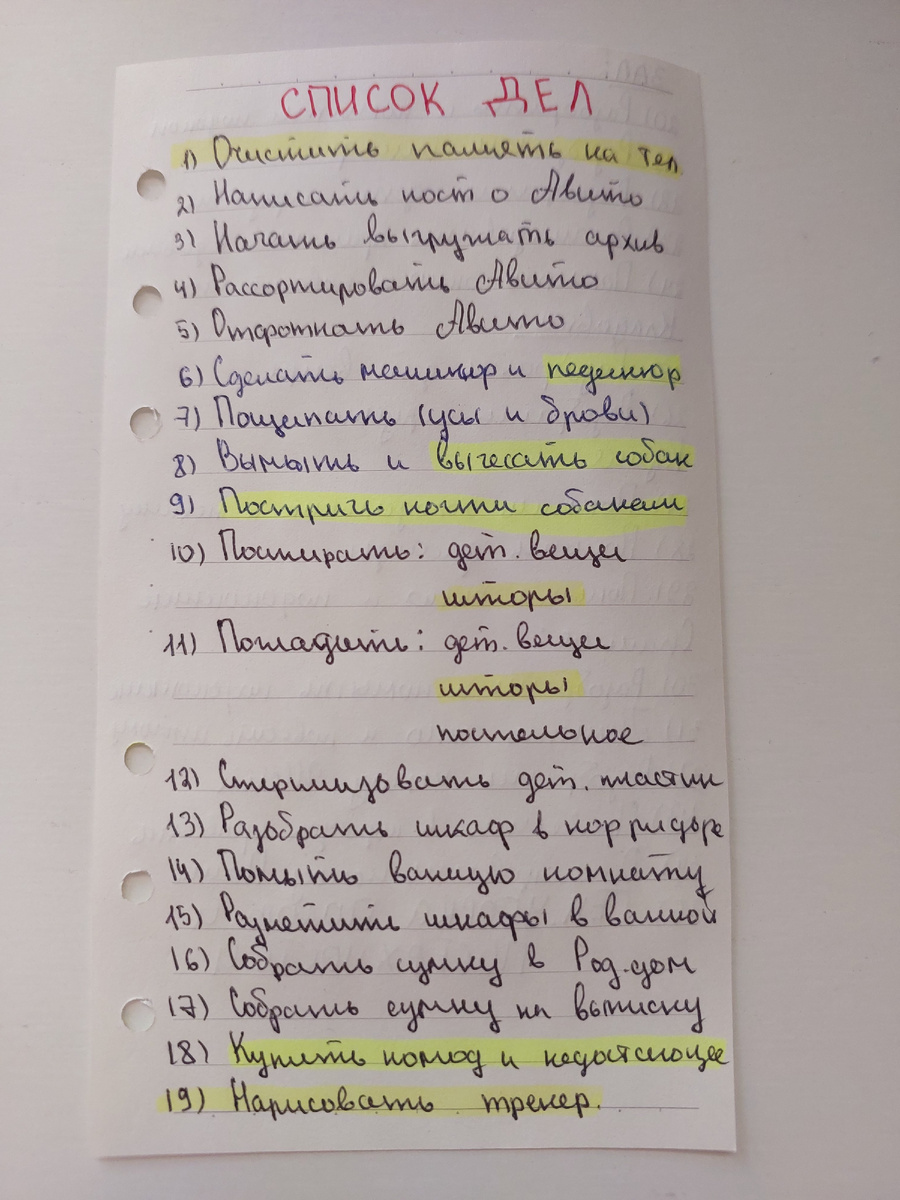 СПИСОК ДЕЛ
1) Очистить память на тел.
2) Написать пост о Авито
3) Начать выгружать архив
4) Рассортировать Авито
5) Отфоткать Авито
6) Сделать маникюр и педикюр
7) Пощипать (усы и брови)
8) Вымыть и вычесать собак
9) Постричь ногти собакам
10) Постирать: дет. вещи
шторы
11) Погладить: дет. вещи
шторы
постельное
12) Стерилизовать дет. пластик
13) Разобрать шкаф в корридоре
14) Помыть ванную комнату
15) Разметить шкафы в ванной
16) Собрать сумку в Род.дом
17) Собрать сумку на выписку
18) Купить комод и недостающее
19) Нарисовать трекер.